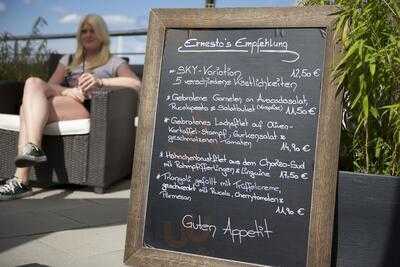 Ernesto's Empfehlung
* SKY-Variation 12,50 €
5 verschiedene Köstlichkeiten
* Gebratene Garnelen an Avocadosalat,
Rucolapesto & Salatbukett 11,50 €
* Gebratenes Lachsfilet auf Oliven-
Kartoffel-Stampf, Gurkensalat &
geschmolzenen Tomaten 14,90 €
* Hähnchenbrustfilet aus dem Chorizo-Sud
mit Pfifferlingen & Linguine 17,50 €
* gefüllt mit Trüffelcreme,
geschwenkt mit Rucola, Cherrytomaten &
Parmesan 11,90 €
Guten Appetit